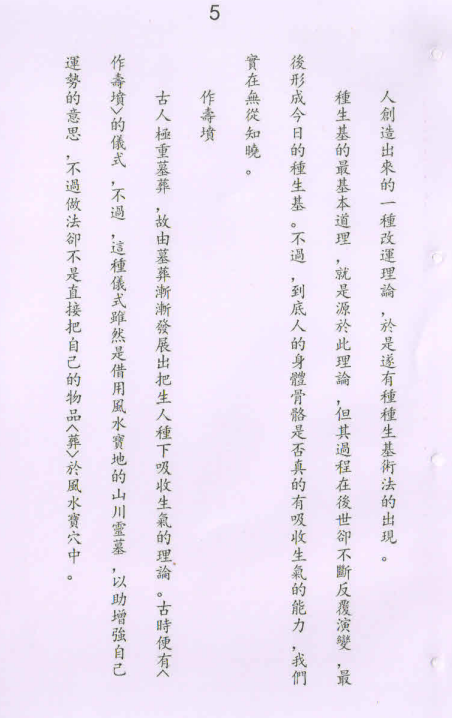 5
人創造出來的一種改運理論，於是遂有種種生基術法的出現。
種生基的最基本道理，就是源於此理論，但其過程在後世卻不斷反覆演變，最
後形成今日的種生基。不過，到底人的身體骨骼是否真的有吸收生氣的能力，我們
實在無從知曉。
作壽墳
古人極重墓葬，故由墓葬漸漸發展出把生人種下吸收生氣的理論。古時便有〈
作壽墳〉的儀式，不過，這種儀式雖然是借用風水寶地的山川靈墓，以助增強自己
運勢的意思，不過做法卻不是直接把自己的物品〈葬〉於風水寶穴中。